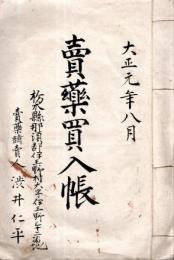 大正元年八月
賣藥買入帳
栃木縣那須郡伊王野村大字伊王野
賣藥請賣人 渋井仁平